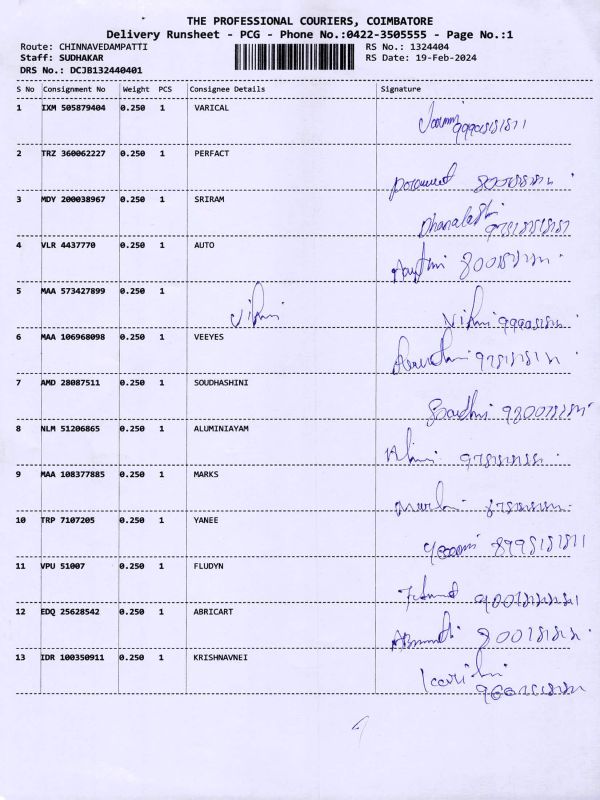 THE PROFESSIONAL COURIERS, COIMBATORE
Delivery Runsheet - PCG - Phone No.:0422-3505555 - Page No.:1
Route: CHINNAVEDAMPATTI RS No.: 1324404
Staff: SUDHAKAR RS Date: 19-Feb-2024
DRS No.: DCJB132440401
S No Consignment No Weight PCS Consignee Details Signature
1 IXM 505879404 0.250 1 VARICAL
2 TRZ 360062227 0.250 1 PERFACT
3 MDY 200038967 0.250 1 SRIRAM
4 VLR 4437770 0.250 1 AUTO
5 MAA 573427899 0.250 1
6 MAA 106968098 0.250 1 VEEYES
7 AMD 28087511 0.250 1 SOUDHASHINI
8 NLM 51206865 0.250 1 ALUMINIAYAM
9 MAA 108377885 0.250 1 MARKS
10 TRP 7107205 0.250 1 YANEE
11 VPU 51007 0.250 1 FLUDYN
12 EDQ 25628542 0.250 1 ABRICART
13 IDR 100350911 0.250 1 KRISHNAVNEI